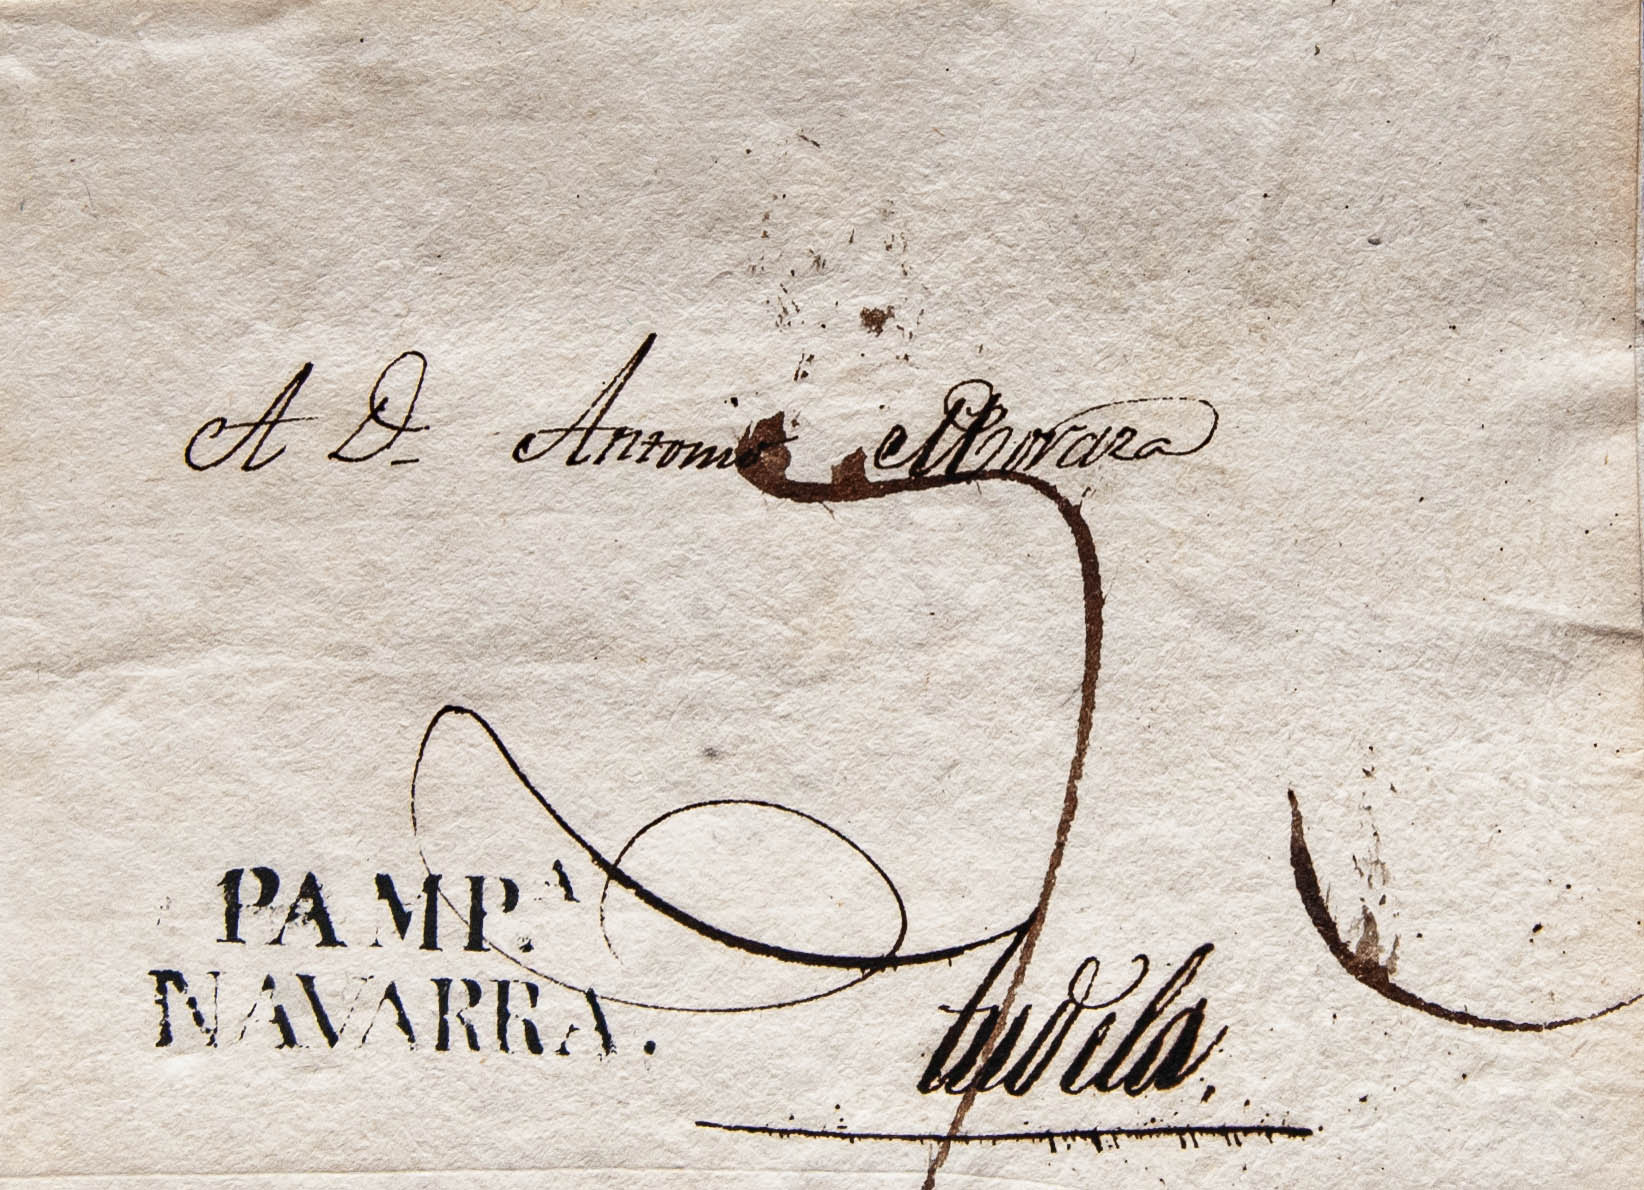 A D.ⁿ Antonio Moraza
PAMP.ᴬ
NAVARRA.
tudela.